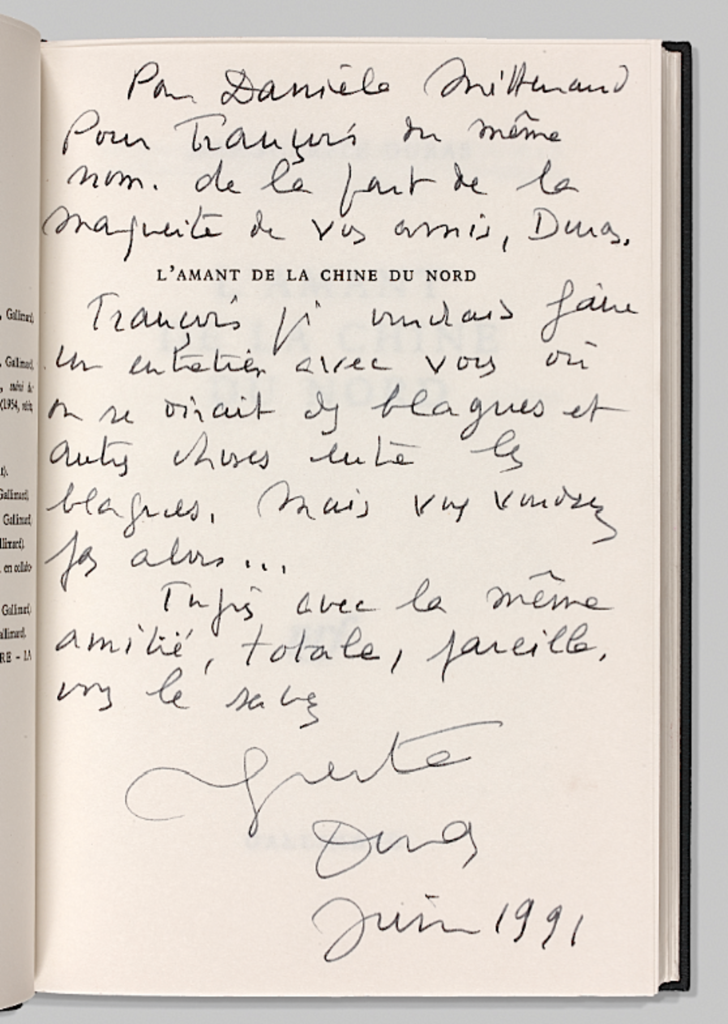 Pour Danièle Mitterrand
Pour François du même
nom. de la part de la
marguerite de vos amis, Duras.
L'AMANT DE LA CHINE DU NORD
François je voudrais faire
un entretien avec vous où
on se dirait des blagues et
autres choses entre les
blagues. Mais vous voudrez
pas alors...
avec la même
amitié, totale, pareille,
vous le savez
Duras
Juin 1991
Gallimard,
Gallimard,
(1954,
Gallimard,
Gallimard,
en collabo-
Gallimard,
RE - LA